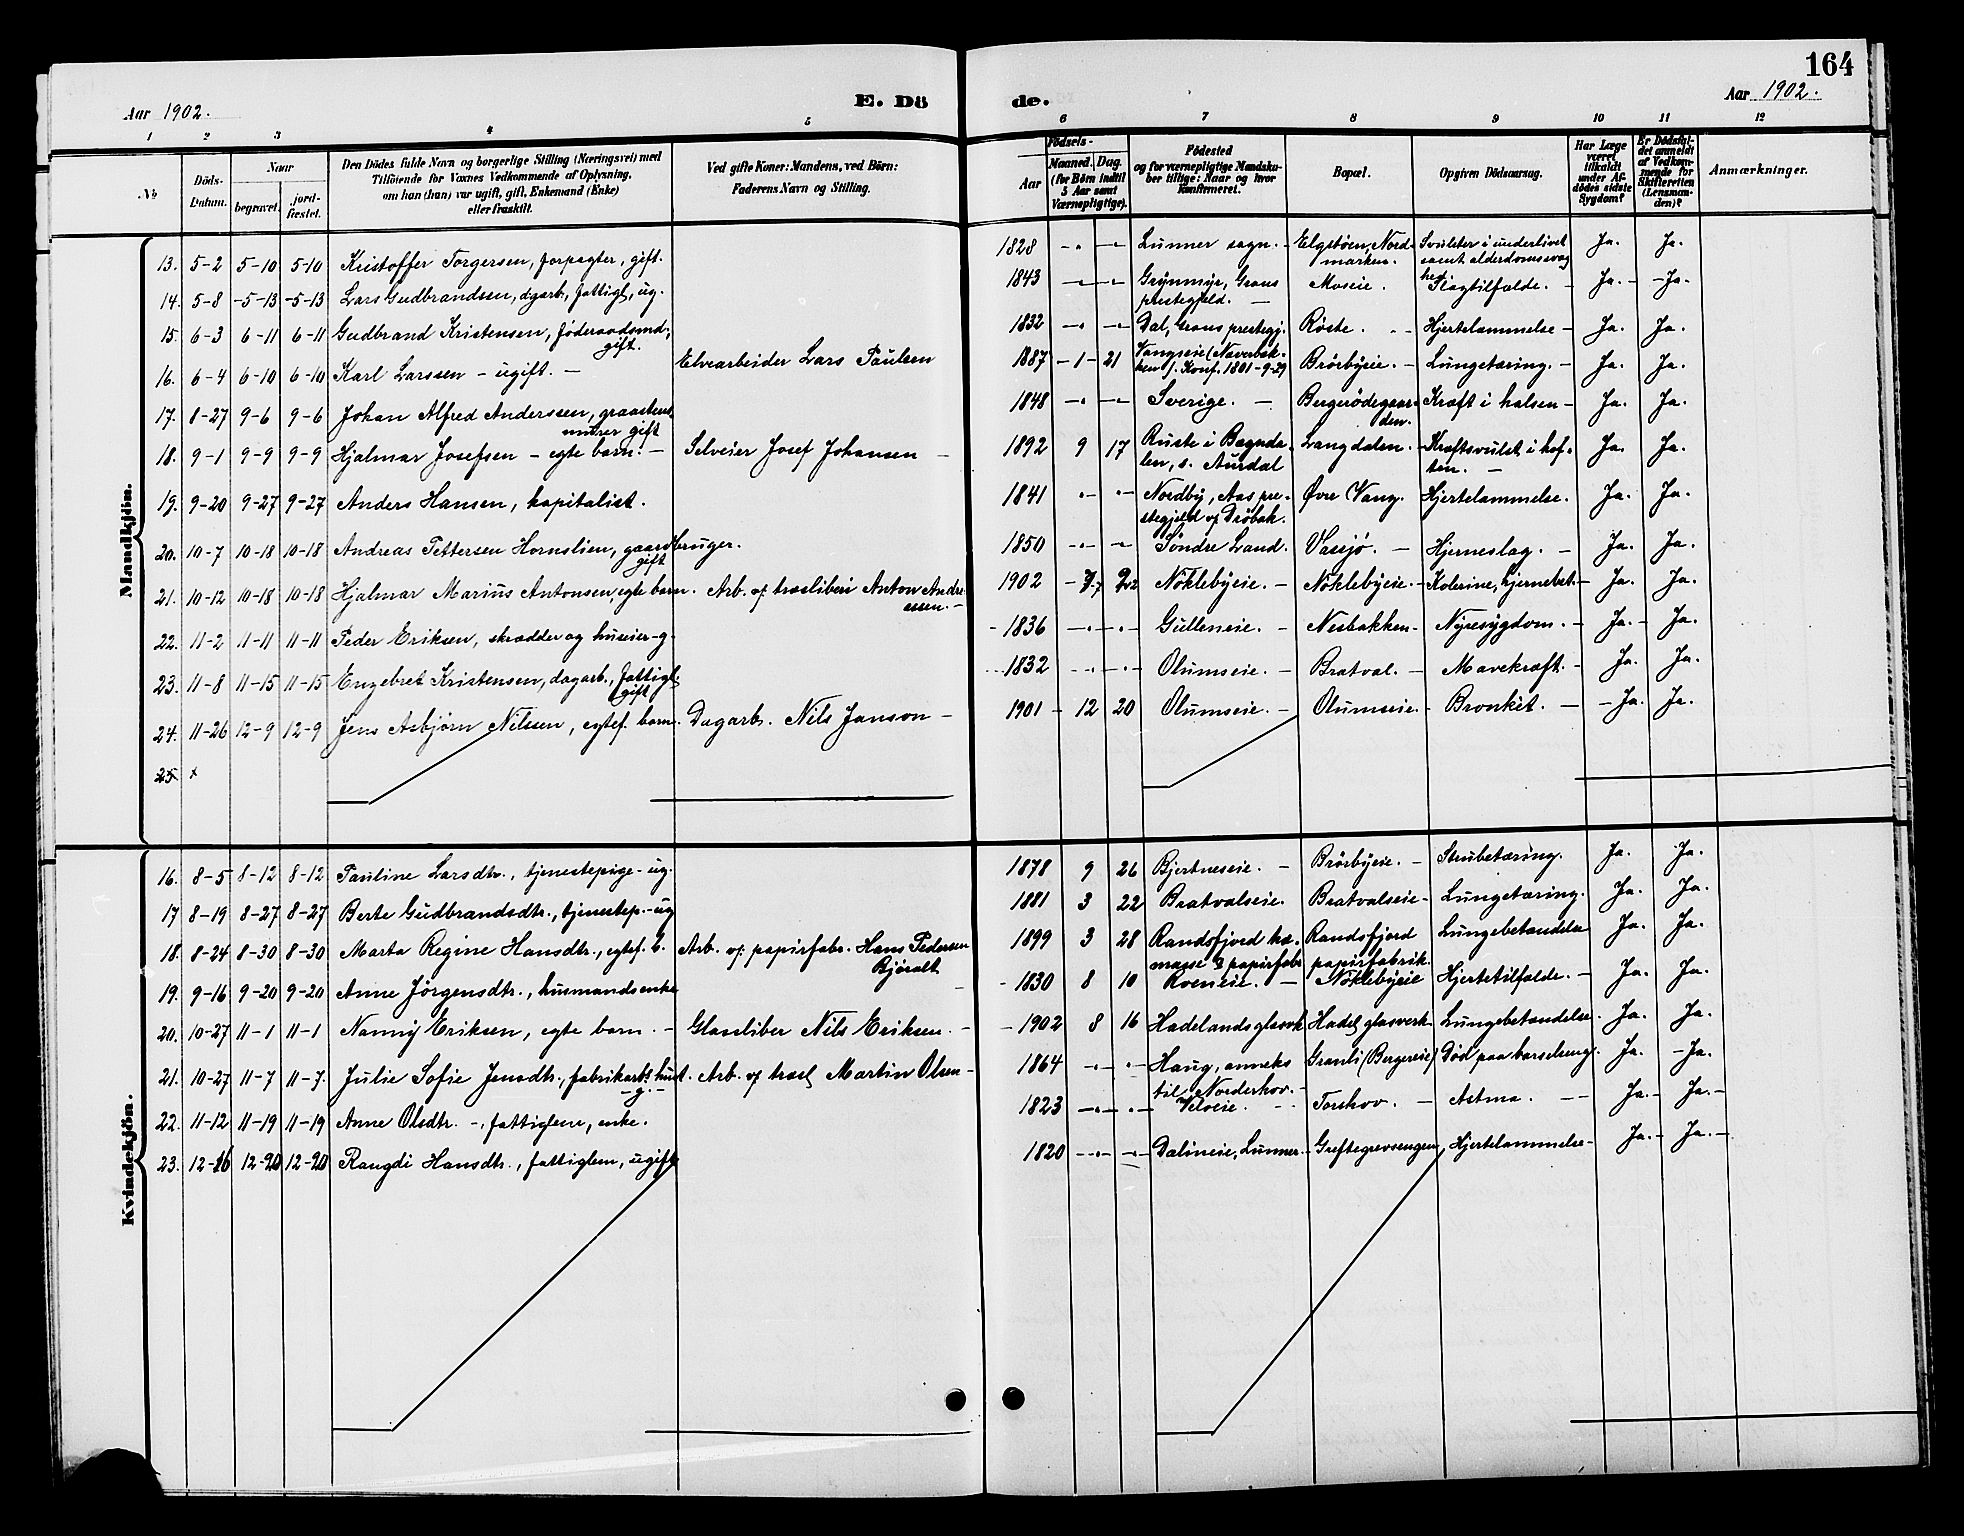 164
Aar 1902.
E. Dö
de.
Aar 1902.
1 2 3 4 5 6 7 8 9 10 11 12
No
Döds-Datum.
Naar
begravet.
jord-fæstet.
Den Dödes fulde Navn og borgerlige Stilling (Næringsvei) med
Tilföiende for Voxnes Vedkommende af Oplysning,
om han (hun) var ugift, gift, Enkemand (Enke)
eller fraskilt.
Ved gifte Koner: Mandens, ved Börn:
Faderens Navn og Stilling.
Födsels-
Aar
Maaned. Dag.
(for Börn indtil
5 Aar samt
Værnepligtige).
Födested
og for værnepligtige Mandska-
ber tillige: Naar og hvor
konfirmeret.
Bopæl.
Opgiven Dödsaarsag.
Har Læge
været
tilkaldt
under Af-
dødes sidste
Sygdom?
Er Dödsfal-
det anmeldt
af Vedkom-
mende for
Skifteretten
(Lensman-
den)?
Anmærkninger.
Mandkjön.
13. 5-2 5-10 5-10 Kristoffer Torgersen, forpagter, gift. 1828 -"- -"- Lunner sogn. - Elgstøen, Nord-
marken. Svulster i underlivet
samt alderdomssvag
hed Ja. Ja.
14. 5-8 -5-13 -5-13 Lars Gudbrandsen, dgarb., fattigl, ug. 1843 -"- -"- Grynmyr, Grans
prestegjeld. - Moseie. Slagtilfælde. - Ja. - Ja.
15. 6-3 6-11 6-11 Gudbrand Kristensen, föderaadsmd.,
gift. 1832 -"- -"- Dal, Grans prestegj. Røste. Hjertelammelse - Ja. Ja.
16. 6-4 6-10 6-10 Karl Larssen - ugift. - Elvearbeider Lars Paulsen 1887 -1- 21 Vangseie (Naverbak-
ken). Konf. 1801-9-29 Brörbyeie. - Lungetæring. - Ja. Ja.
17. 8-27 9-6 9-6 Johan Alfred Anderssen, graastens
murer gift 1848 -"- -"- Sverige. - Bergerödegaar-
den. Kræft i halsen - Ja. Ja.
18. 9-1 9-9 9-9 Hjalmar Josefsen - egte barn. - Selveier Josef Johansen - 1892 9 17 Ruste i Bagnda-
len, s. Aurdal Langdalen. - Kræftsvulst i hof-
ten. - Ja. Ja.
19. 9-20 9-27 9-27 Anders Hansen, kapitalist. 1841 "- "- Nordby, Aas pre-
stegjeld v/ Dröbak. Øvre Vang. Hjertelammelse. Ja. Ja.
20. 10-7 10-18 10-18 Andreas Pettersen Hornslien, gaardbruger.
gift 1850 -"- -"- Söndre Land. Vassjø. - Hjerneslag. - Ja. Ja.
21. 10-12 10-18 10-18 Hjalmar Marius Antonsen, egte barn. Arb. v/ træsliberi Anton Andre
assen. - 1902 -7- 22 Nöklebyeie. - Nöklebyeie. - Kolerine, hjernebet. - Ja. Ja.
22. 11-2 11-11 11-11 Peder Eriksen, skrædder og huseier - g. - 1836 -"- "- Gulleneie. - Nesbakken - Nyresygdom. - Ja. - Ja.
23. 11-8 11-15 11-15 Engebret Kristensen, dagarb., fattigl.
gift 1832 -"- "- Olumseie. - Bratval. - Mavekræft. - Ja. Ja.
24. 11-26 12-9 12-9 Jens Asbjörn Nilssen, egtef. barn. Dagarb. Nils Janson - 1901 - 12 20 Olumseie. - Olumseie. - Bronkit. - - Ja. Ja.
25. x
Kvindekjön.
16. 8-5 8-12 8-12 Pauline Larsdtr., tjenestepige - ug. 1878 9 26 Bjertneseie. - Brörbyeie. - Strubetæring. Ja. Ja.
17 8-19 8-27 8-27 Berte Gudbrandsdtr., tjenestep. - ug 1881 3 22 Bratvalseie. Bratvalseie - Lungetæring. Ja. Ja.
18. 8-24 8-30 8-30 Marta Regine Hansdtr., egtef. b. Arb. v/ papirfabr. Hans Pedersen
Björalt 1899 3 28 Randsfjord træ-
masse & papirfabr Randsfjord
papirfabrik. Lungebetændelse Ja. Ja.
19. 9-16 9-20 9-20 Anne Jörgensdtr., husmandsenke - 1830 8 10 Roeneie. - Nöklebyeie Hjertetilfælde. - Ja. Ja.
20. 10-27 11-1 11-1 Nanny Eriksen, egte barn. - Glassliber Nils Eriksen. - - 1902 8 16 Hadelands glasvk Hadel glasverk. Lungebetændelse. Ja. Ja.
21. 10-27 11-7 11-7. Julie Sofie Jensdtr., fabrikarbs hust.
- g. - Arb. v/ træsl Martin Olsen - 1864 -"- "- Haug, anneks
til Norderhov. - Granli (Bergereie) Död paa barselseng. Ja. - Ja.
22. 11-12 11-19 11-19 Anne Olsdtr. -, fattiglem, enke. 1823 -"- "- Velseie. - Torshov. - Astma. - Ja. - Ja. -
23. 12-16 12-20 12-20 Rangdi Hansdtr., fattiglem, ugift 1820 -"- -"- Dalineie, Lunner. - Greftegrevsengen, Hjertelammelse - Ja. - Ja. -